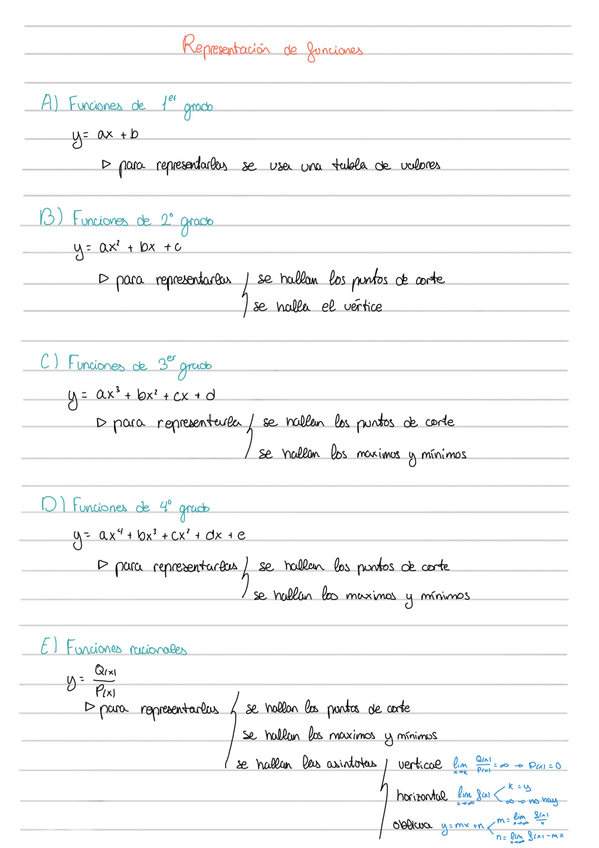 Representación de funciones
A) Funciones de 1er grado
y = ax + b
▷ para representarlas se usa una tabla de valores
B) Funciones de 2º grado
y = ax² + bx + c
▷ para representarlas se hallan los puntos de corte
se halla el vértice
C) Funciones de 3er grado
y = ax³ + bx² + cx + d
▷ para representarla se hallan los puntos de corte
se hallan los maximos y mínimos
D) Funciones de 4º grado
y = ax⁴ + bx³ + cx² + dx + e
▷ para representarlas se hallan los puntos de corte
se hallan los maximos y mínimos
E) Funciones racionales
y = Q(x)/P(x)
▷ para representarlas se hallan los puntos de corte
se hallan los maximos y mínimos
se hallan las asíntotas vertical lim x→k Q(x)/P(x) = ∞ → P(x) = 0
horizontal lim x→∞ f(x) k = y
∞ → no hay
oblicua y = mx + n m = lim x→∞ f(x)/x
n = lim x→∞ f(x) - mx